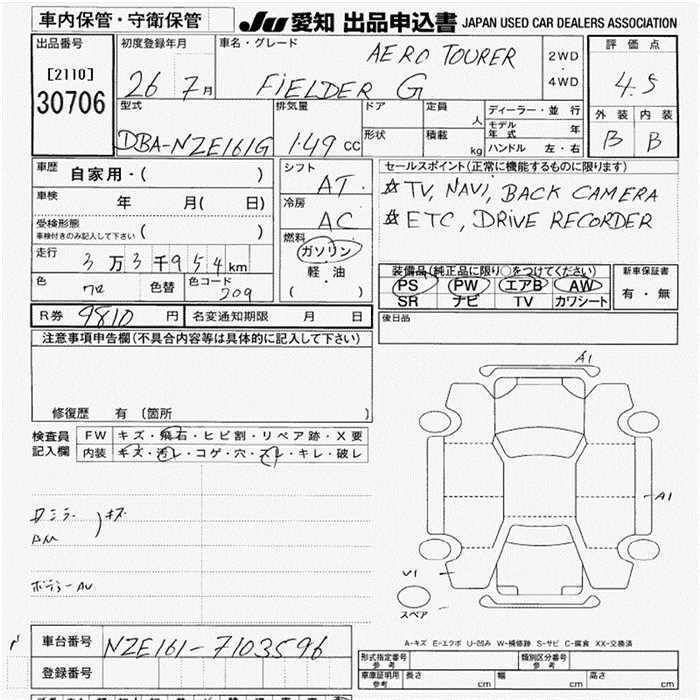 車内保管・守衛保管
JU 愛知 出品申込書 JAPAN USED CAR DEALERS ASSOCIATION
出品番号
[2110]
30706
初度登録年月
26 7月
車名・グレード
AERO TOURER
FIELDER G
2WD
・
4WD
評価点
4.5
外装 内装
B B
型式
DBA-NZE161G
排気量
1.49 cc
ドア
形状
定員
人
積載
kg
ディーラー・並行
モデル年式 年
ハンドル 左・右
車歴 自家用・( )
車検 年 月( 日)
受検形態
車検付きのみ記入して下さい ( )
走行 3万3千954km
色 色替 色コード 209
シフト
AT
冷房
AC
燃料
ガソリン
軽・油
( )
セールスポイント(正常に機能するものに限ります)
☆TV, NAVI, BACK CAMERA
☆ETC, DRIVE RECORDER
装備品(純正品に限り○をつけてください)
PS PW エアB AW
SR ナビ TV カワシート
新車保証書
有・無
R券 9810 円 名変通知期限 月 日
後日品
注意事項申告欄(不具合内容等は具体的に記入して下さい)
修復歴 有 〔箇所 〕
検査員記入欄
FW キズ・飛石・ヒビ割・リペア跡・X要
内装 キズ・汚レ・コゲ・穴・スレ・キレ・破レ
キズ
A1
A1
U1
スペア
A-キズ E-エクボ U-凹み W-補修跡 S-サビ C-腐食 XX-交換済
車台番号 NZE161-7103596
登録番号
形式指定番号 参考
類別区分番号 参考
車庫証明用 参考 長さ cm 幅 cm 高さ cm